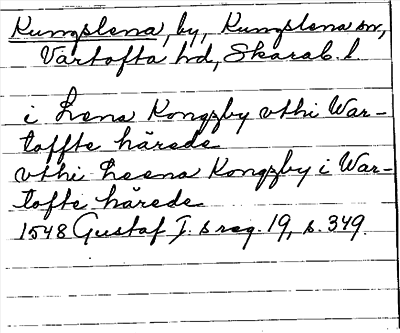 Kungslena, by, Kungslena sn,
Vartofta hd, Skarab. l.
i Lena Kongzby vthi War-
toffte härede
vthi Leena Kongzby i War-
tofte härede
1548 Gustaf I:s reg. 19, s. 349.